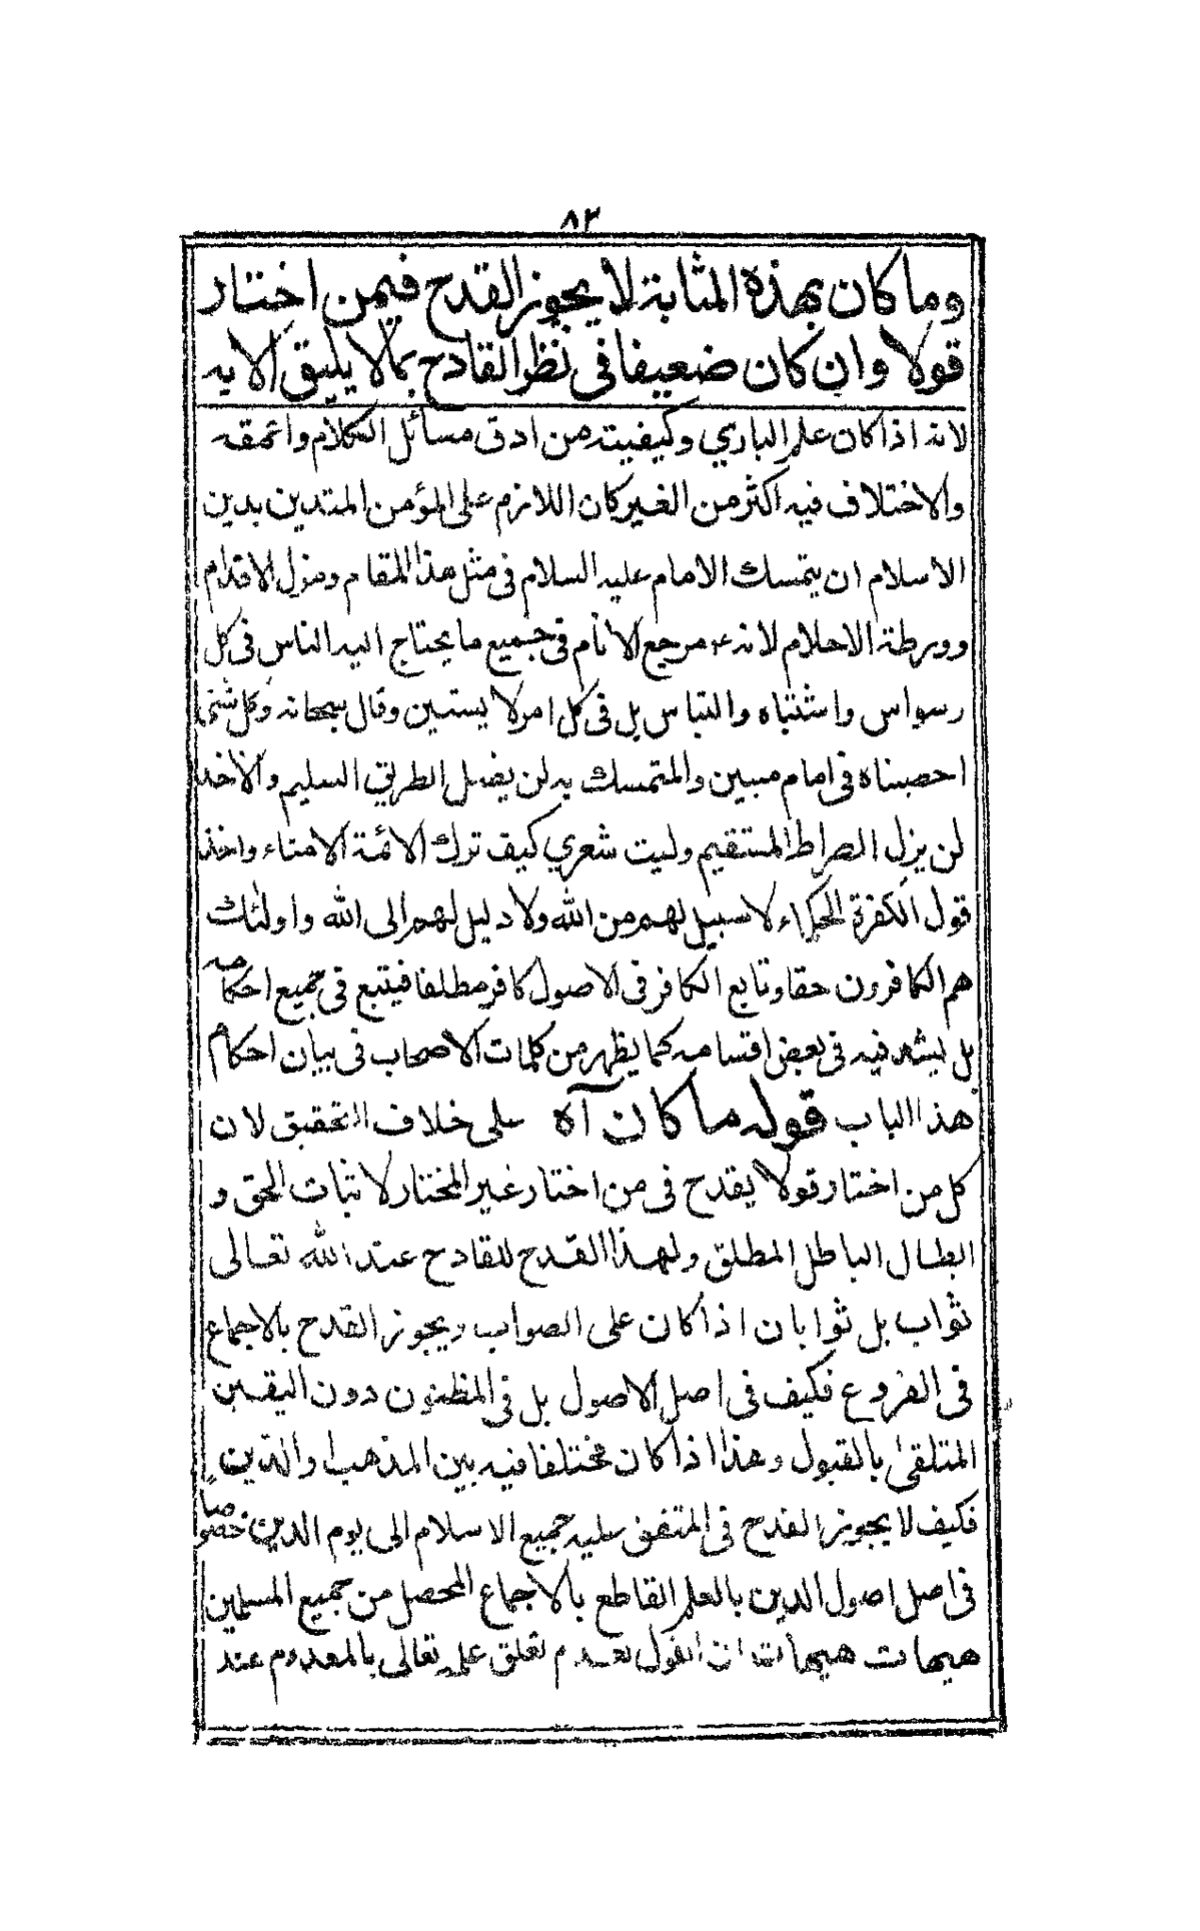 ٨٣
وما كان بهذه المثابة لا يجوز القدح فيمن اختار
قولا وان كان ضعيفا في نظر القادح بما لا يليق الا به
لانه اذا كان علم الباري وكيفيته من ادق مسائل الكلام واعمقه
والاختلاف فيه اكثر من الغير كان اللازم على المؤمن المتدين بدين
الاسلام ان يتمسك الامام عليه السلام في مثل هذا المقام ومزل الاقدام
وورطة الاحلام لانه ع مرجع الانام في جميع ما يحتاج اليه الناس في كل
رسواس واشتباه والتباس بل في كل امر لا يستبين وقال سبحانه وكل شئ
احصيناه في امام مبين والمتمسك به لن يضل الطريق السليم والاخذ
لن يزل الصراط المستقيم وليت شعري كيف ترك الائمة الامناء واخذ
قول الكفرة الحكماء لا سبيل لهم من الله ولا دليل لهم الى الله واولئك
هم الكافرون حقا وتابع الكافر في الاصول كافر مطلقا فيتبع في جميع احكامه
بل فيه في بعض اقسامه كما يظهر من كلمات الاصحاب في بيان احكام
هذا الباب قوله ما كان آه على خلاف التحقيق لان
كل من اختار قولا يقدح في من اختار غير المختار لاثبات الحق و
ابطال الباطل المطلق ولهذا القدح للقادح عند الله تعالى
ثواب بل ثوابان اذا كان على الصواب ويجوز القدح بالاجماع
في الفروع فكيف في اصل الاصول بل في المظنون دون اليقين
المتلقى بالقبول وهذا اذا كان مختلفا فيه بين المذهب والدين
فكيف لا يجوز القدح في المتفق عليه جميع الاسلام الى يوم الدين خصوصا
في اصل اصول الدين بالعلم القاطع بالاجماع المحصل من جميع المسلمين
هيهات هيهات ان القول بعدم تعلق علمه تعالى بالمعدوم عند